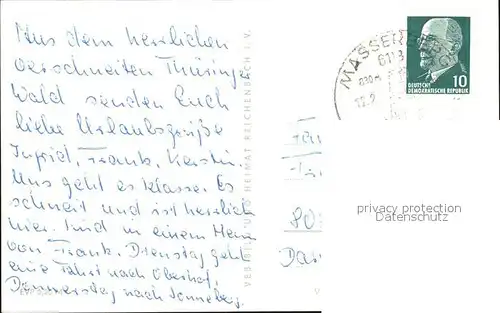 Aus dem herrlichen
verschneiten Thüringer
Wald senden Euch
liebe Urlaubsgrüße
Ingrid, Frank, Kerstin.
Uns geht es klasse. Es
schneit und ist herrlich
hier. Sind in einem Heim
von Frank. Dienstag geht
eine Fahrt nach Oberhof,
Donnerstag nach Sonneberg.
VEB BILD UND HEIMAT REICHENBACH I. V.
MASSERBERG
6113
830 m
12.2
10
DEUTSCHE
DEMOKRATISCHE REPUBLIK
privacy protection
Datenschutz